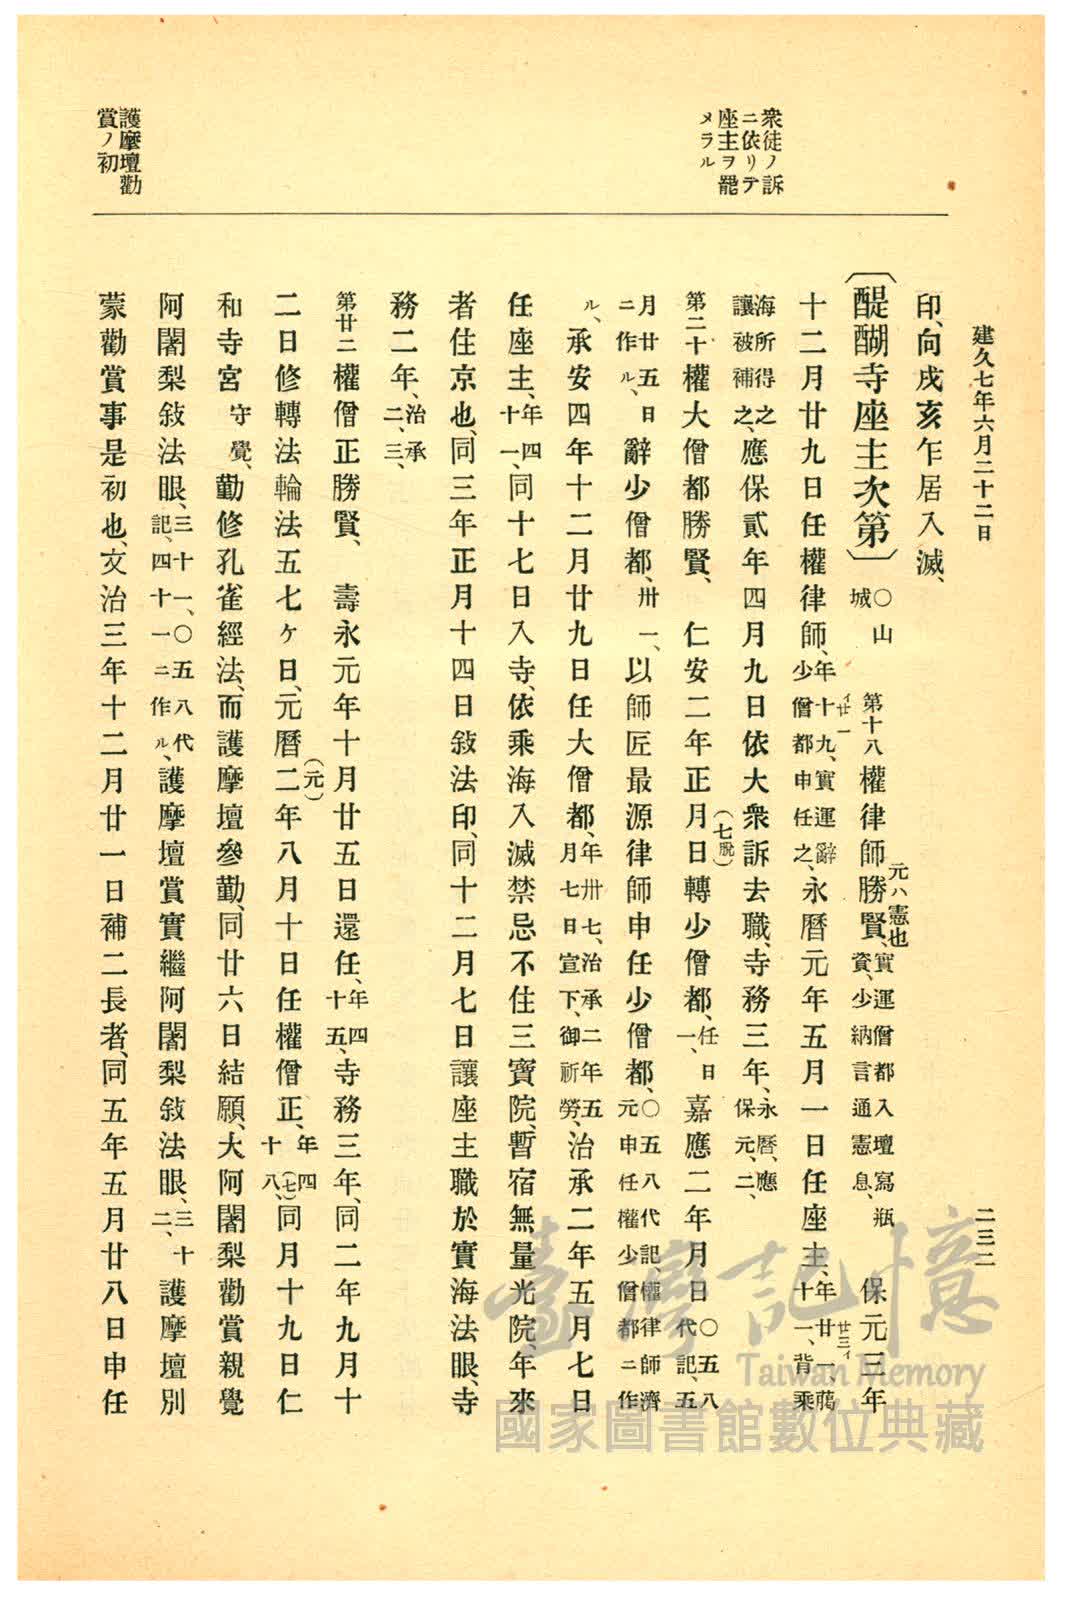 建久七年六月二十二日
二三二
衆徒ノ訴
ニ依リテ
座主ヲ罷
メラル
護摩壇勸
賞ノ初
印、向戌亥乍居入滅、
〔醍醐寺座主次第〕○山城 第十八權律師勝賢、元ハ憲也 實運僧都入壇寫瓶資、少納言通憲息、 保元三年
十二月廿九日任權律師、年十九、イ廿一 實運辭少僧都申任之、永曆元年五月一日任座主、年廿一、廿三イ 﨟十一、背乘
海所得之讓被補之、應保貳年四月九日依大衆訴去職、寺務三年、永曆、應保元、二、
第二十權大僧都勝賢、 仁安二年正月日轉少僧都、(七脫) 任日一、嘉應二年月日○五八代記、五
月廿五日ニ作ル、辭少僧都、卅一、以師匠最源律師申任少僧都、○五八代記權律師濟元申任權少僧都ニ作
ル、承安四年十二月廿九日任大僧都、年卅七、治承二年五月七日宣下、御祈勞、治承二年五月七日
任座主、年四十一、同十七日入寺、依乘海入滅禁忌不住三寶院、暫宿無量光院、年來
者住京也、同三年正月十四日敍法印、同十二月七日讓座主職於實海法眼、寺
務二年、治承二、三、
第廿二權僧正勝賢、 壽永元年十月廿五日還任、年四十五、寺務三年、同二年九月十
二日修轉法輪法五七ケ日、元曆二(元)年八月十日任權僧正、年四十八、(七)同月十九日仁
和寺宮守覺、勤修孔雀經法、而護摩壇參勤、同廿六日結願、大阿闍梨勸賞親覺
阿闍梨敍法眼、三十一、○五八代記、四十一ニ作ル、護摩壇賞實繼阿闍梨敍法眼、三十二、護摩壇別
蒙勸賞事是初也、文治三年十二月廿一日補二長者、同五年五月廿八日申任
臺灣記憶
Taiwan Memory
國家圖書館數位典藏